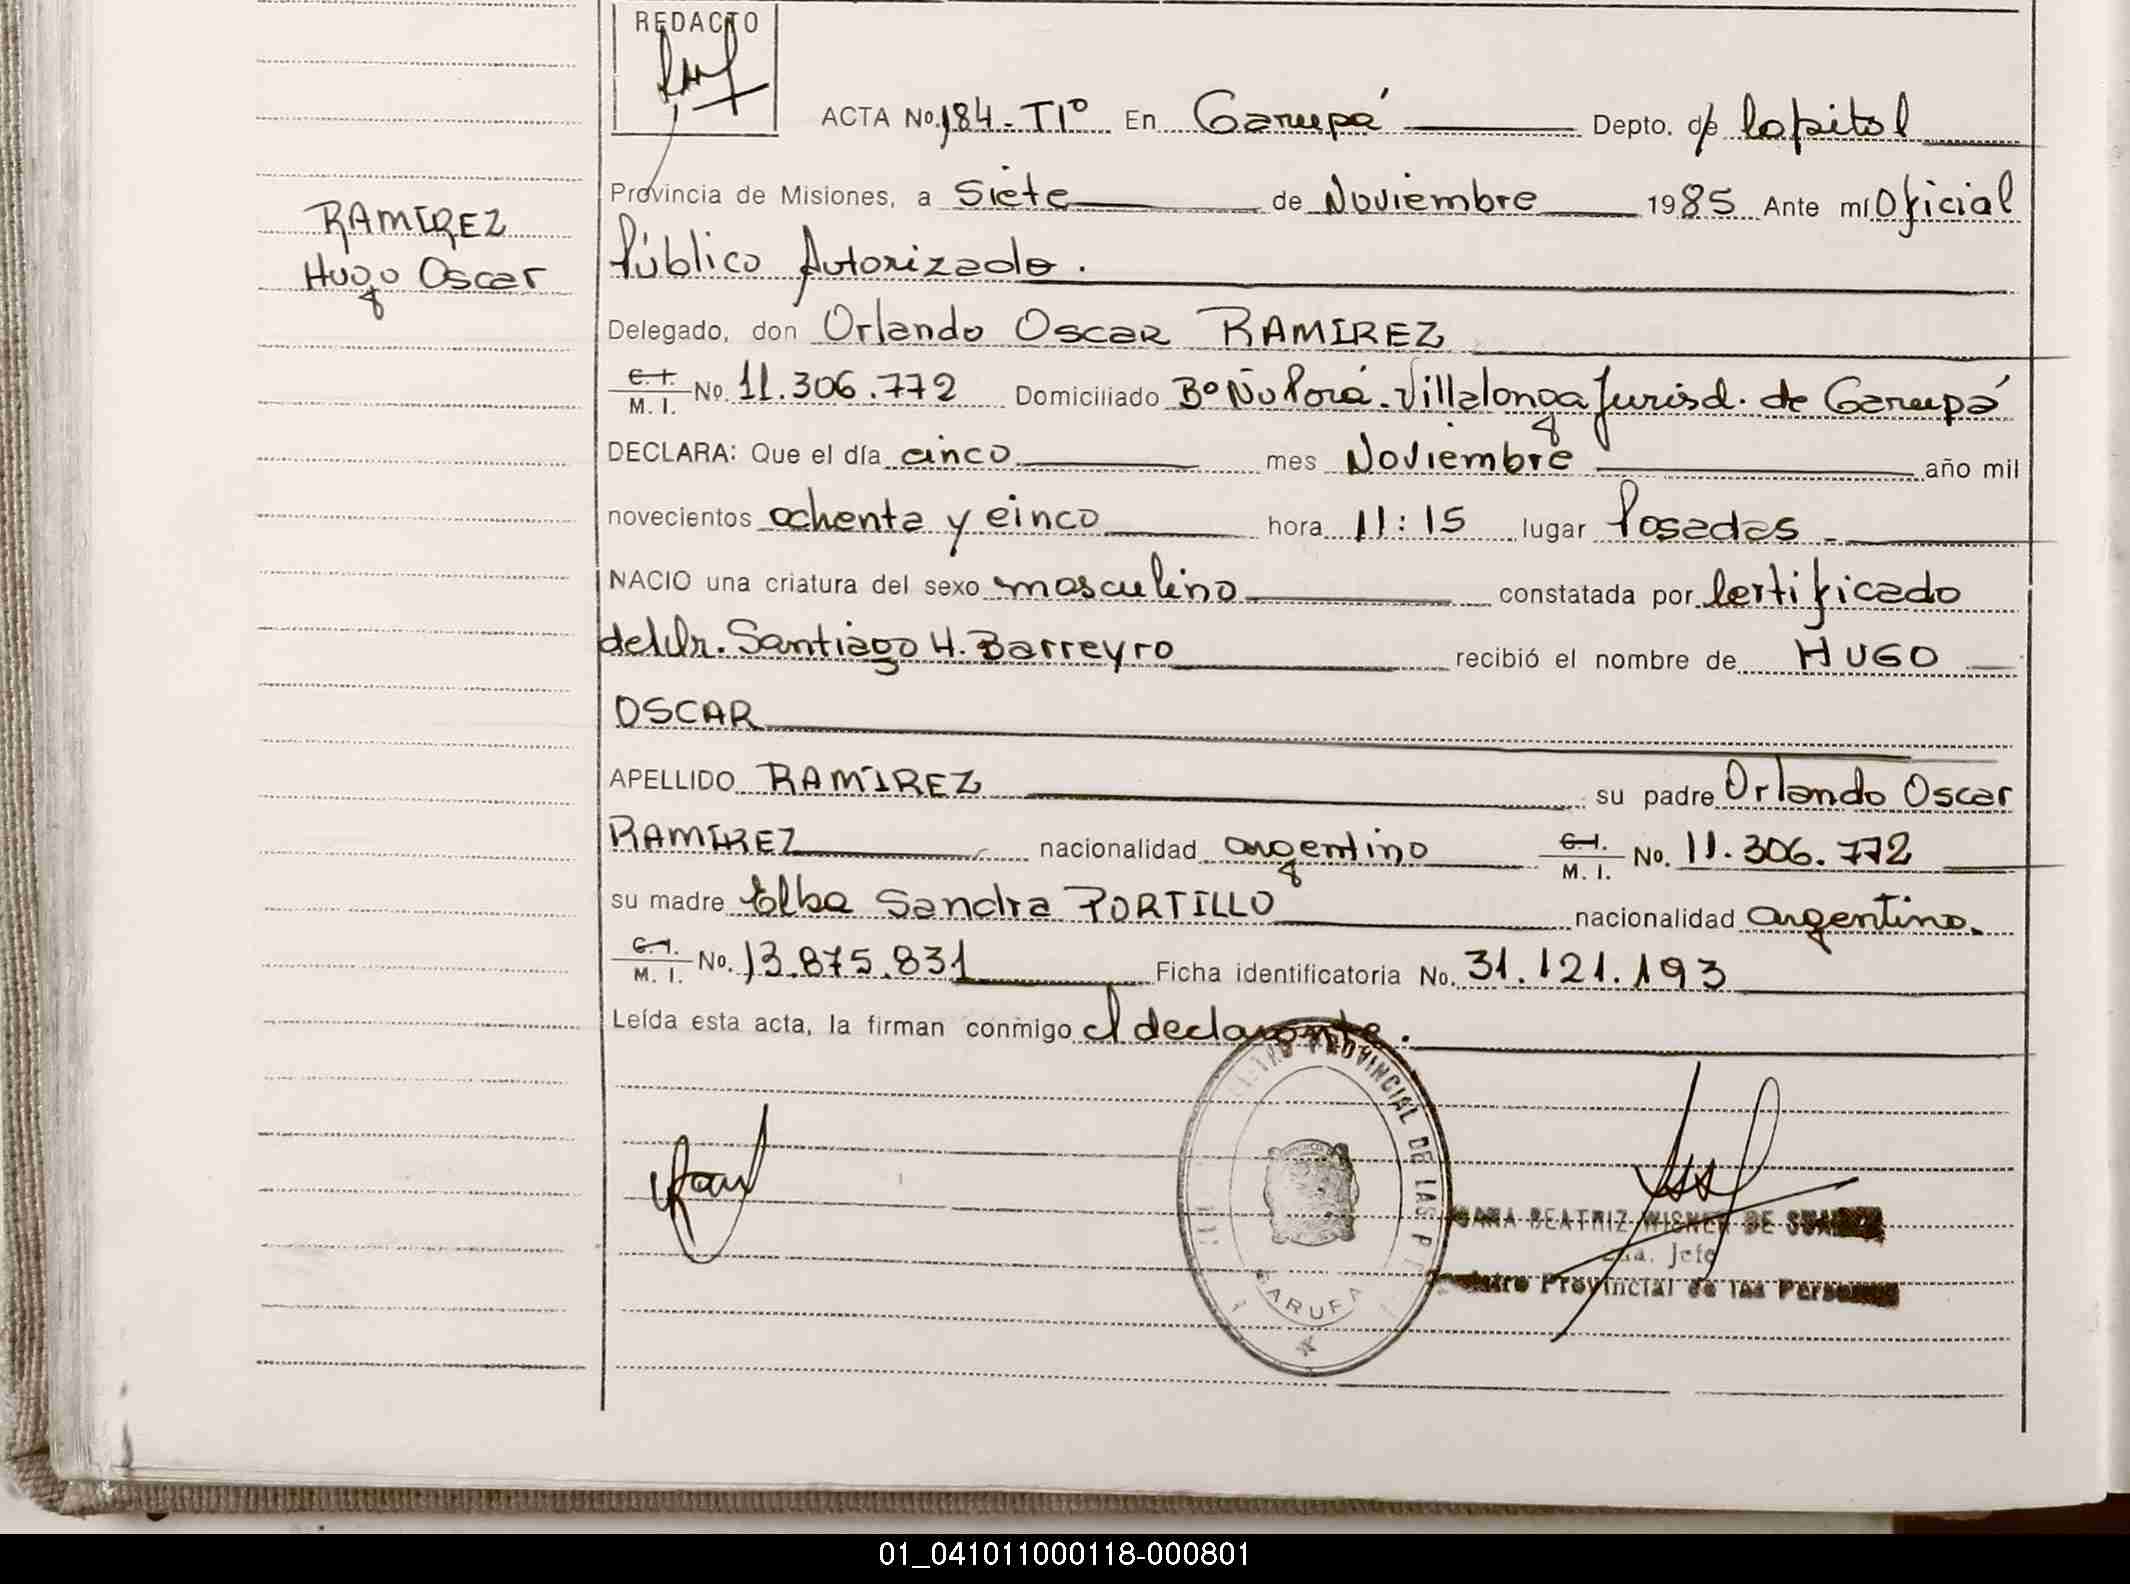 REDACTO
ACTA No. 184 - T1º En Garupá Depto. de Capital
Provincia de Misiones, a Siete de Noviembre 1985 Ante mí Oficial
RAMIREZ
Público Autorizado.
Hugo Oscar
Delegado, don Orlando Oscar RAMIREZ
C. I.
M. I. No. 11.306.772 Domiciliado Bº Ñu Porá. Villalonga Jurisd. de Garupá
DECLARA: Que el día cinco mes Noviembre año mil
novecientos ochenta y cinco hora 11:15 lugar Posadas -
NACIO una criatura del sexo masculino constatada por Certificado
del Dr. Santiago H. Barreyro recibió el nombre de HUGO
OSCAR
APELLIDO RAMIREZ su padre Orlando Oscar
RAMIREZ nacionalidad argentino C. I. M. I. No. 11.306.772
su madre Elba Sandra PORTILLO nacionalidad argentina.
C. I. M. I. No. 13.875.831 Ficha identificatoria No. 31.121.193
Leída esta acta, la firman conmigo el declarante.
PROVINCIAL DE LAS
BEATRIZ WISNER DE
Jefe
Provincial de las Personas
01_041011000118-000801